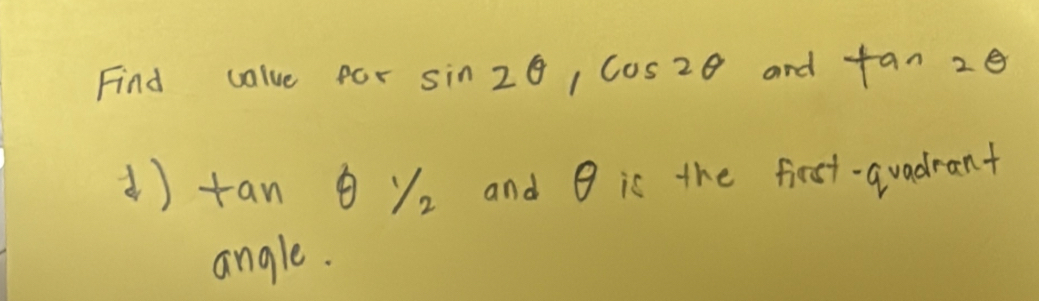 Find value for sin 2θ, cos 2θ and tan 2θ
1) tan θ 1/2 and θ is the first-quadrant
angle.